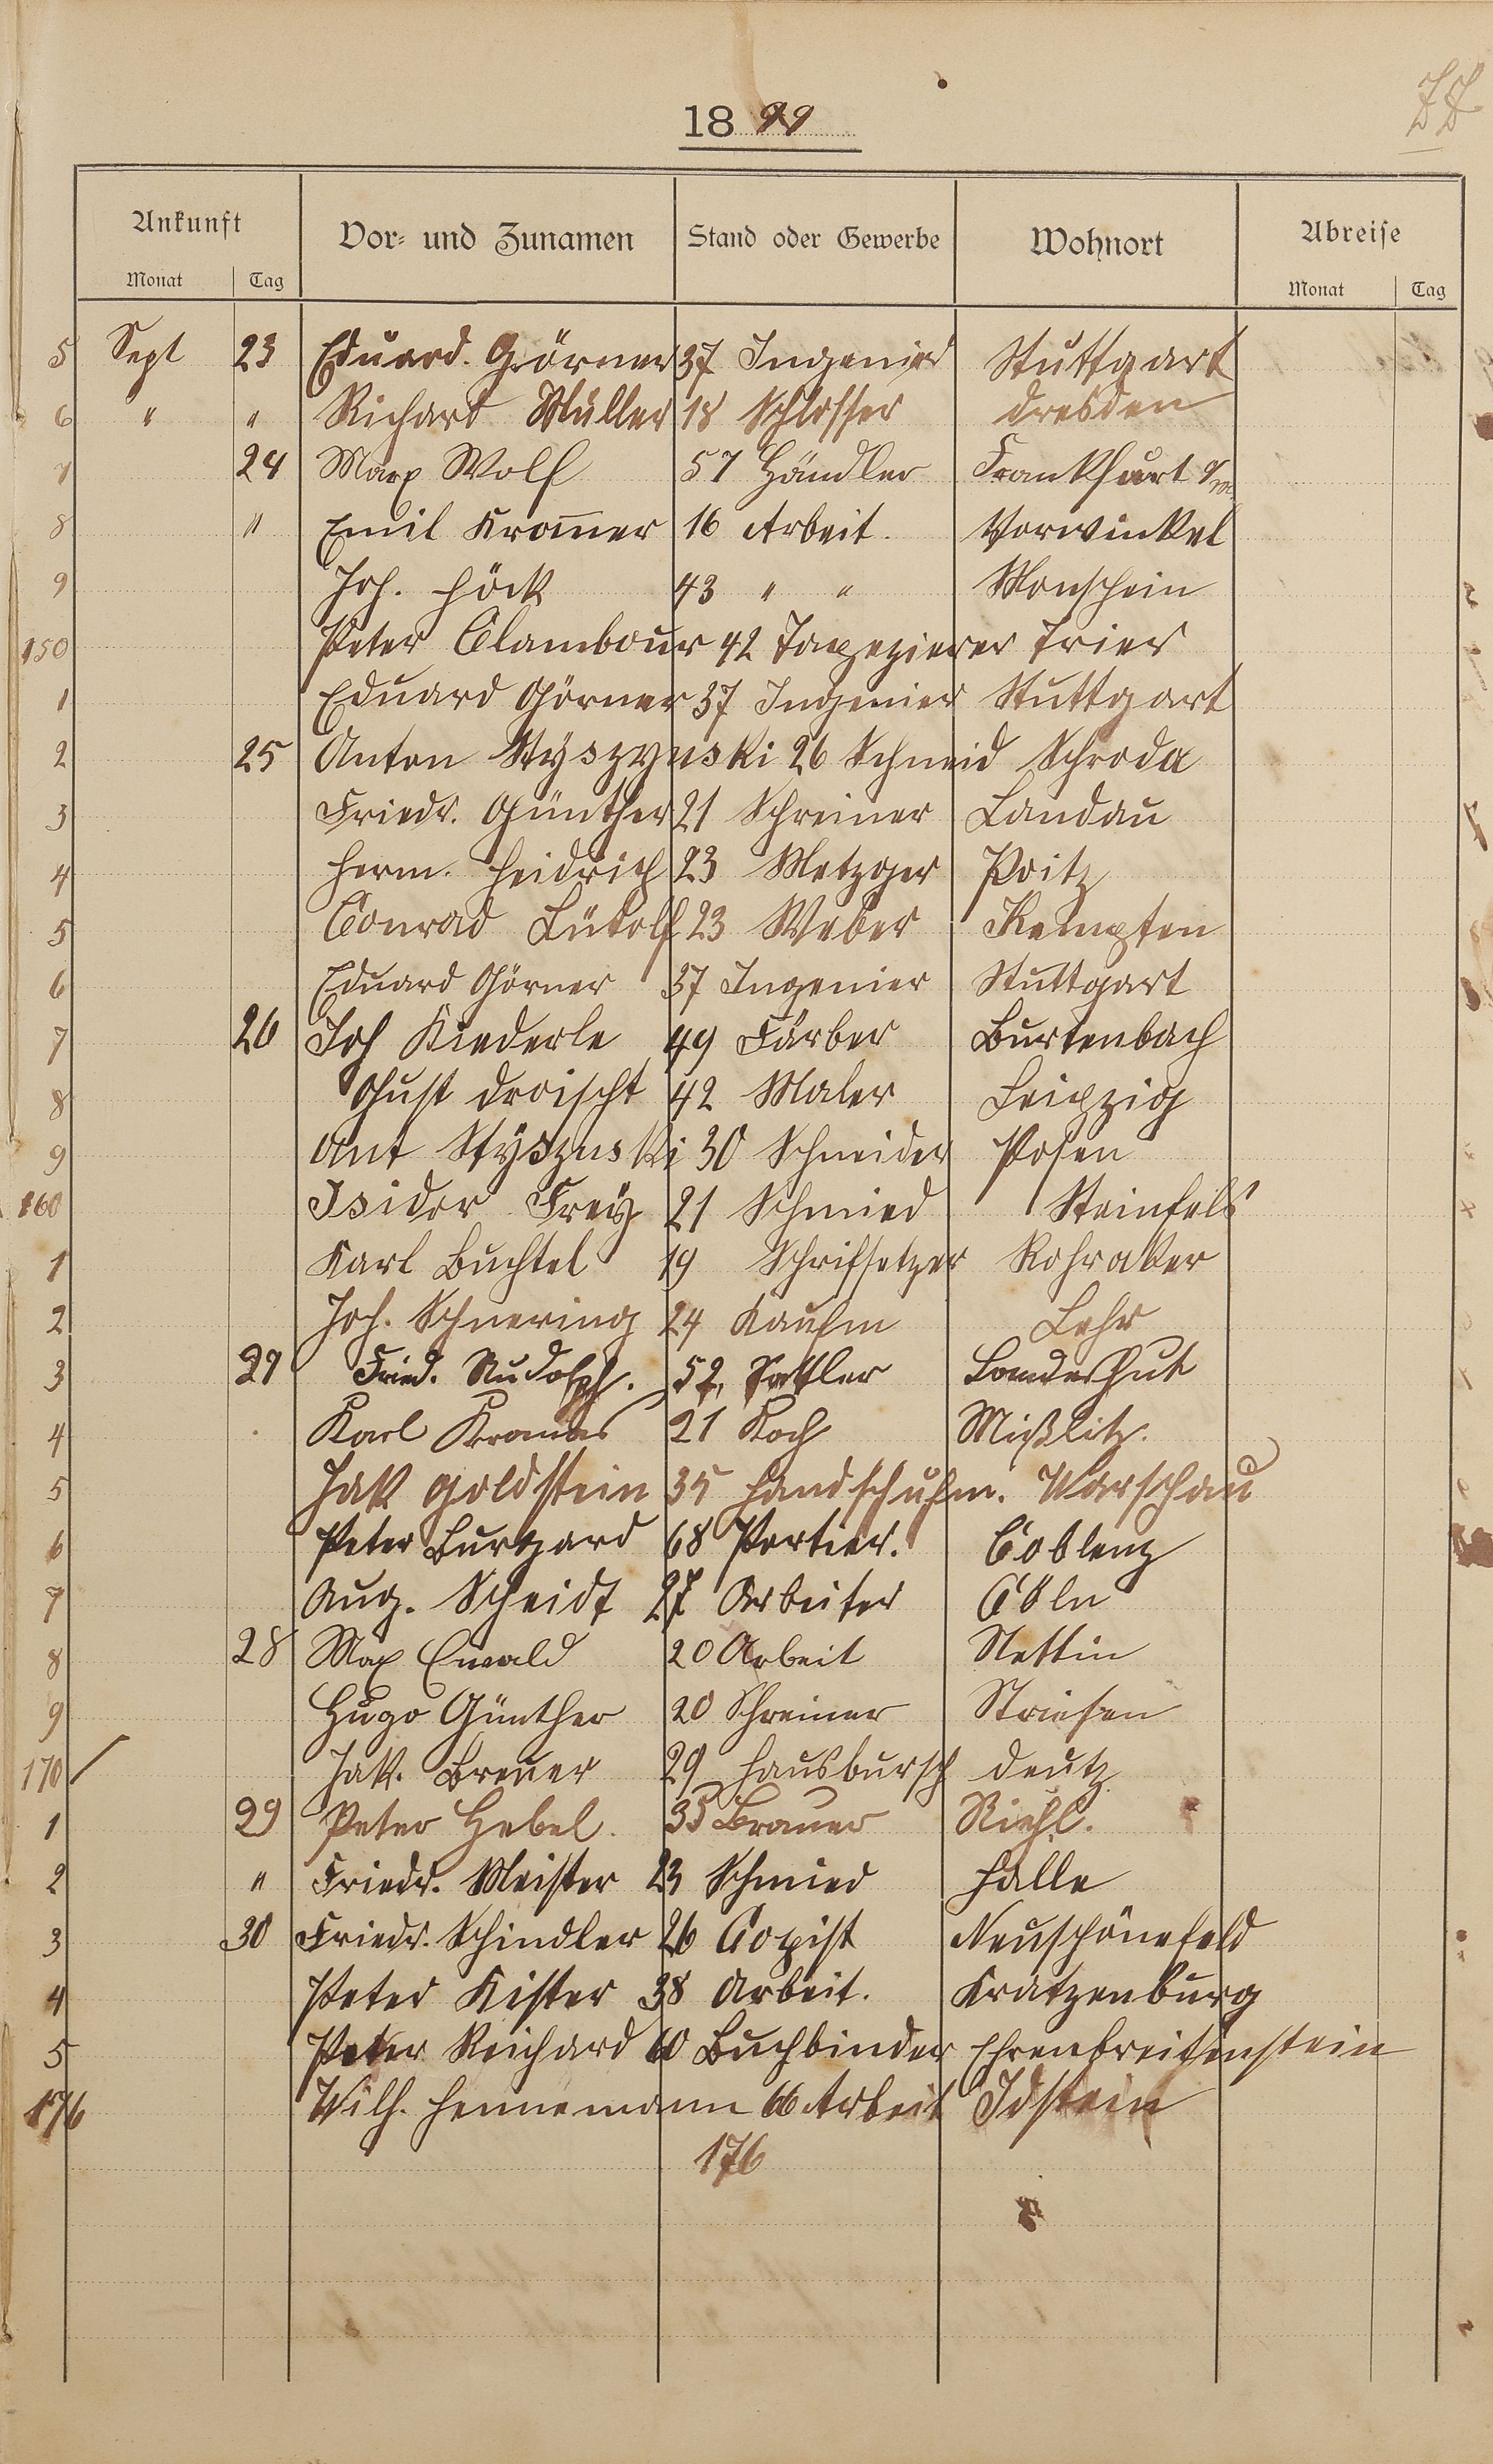 1899
Ankunft Vor- und Zunamen Stand oder Gewerbe Wohnort Abreise
Monat Tag Monat Tag
5 Sept 23 Eduard Görner 37 Ingenier Stuttgart
6 " " Richard Müller 18 Schlosser Dresden
7 24 Max Wolf 57 Händler Frankfurt a/M.
8 " Emil Kromer 16 Arbeit. Vorwinkel
9 Joh. Höck 43 " " Monschein
150 Peter Clambour 42 Tapezierer Trier
1 Eduard Görner 37 Ingenier Stuttgart
2 25 Anton Styszynski 26 Schneid Schroda
3 Friedr. Günther 21 Schreiner Landau
4 Herm. Heidrich 23 Metzger Poitz
5 Conrad Lütolf 23 Weber Kempten
6 Eduard Görner 37 Ingenier Stuttgart
7 26 Joh Kiederle 49 Färber Burtenbach
8 Gust Droischt 42 Maler Leipzig
9 Ant Stysznski 30 Schneider Posen
160 Isidor Frey 21 Schmied Steinfels
1 Karl Buchtel 19 Schrifsetzer Rohraker
2 Joh. Schnering 24 Kaufm Lehr
3 27 Fried. Rudolph. 52, Sattler Landeshut
4 Karl 21 Koch Mißlitz.
5 Jak Goldstein 35 Handschuhm. Warschau
6 Peter Burgard 68 Portier. Coblenz
7 Aug. Scheidt 27 Arbeiter Cöln
8 28 Max Ewald 20 Arbeit Stettin
9 Hugo Günther 20 Schreiner Striesen
170 Jak. Breuer 29 Hausbursch Deutz
1 29 Peter Hebel. 35 Brauer Riehl.
2 " Friedr. Meister 23 Schmied Halle
3 30 Friedr. Schindler 26 Copist Neuschönefeld
4 Peter Kister 38 Arbeit. Kratzenburg
5 Peter Reichard 60 Buchbinder Ehrenbreitenstein
176 Wilh. Hennemann 66 Arbeit Idstein
176